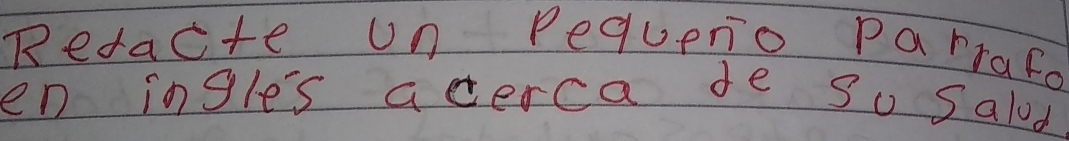 Redacte un Pequeño Parrafo
en inglés acerca de su salud.